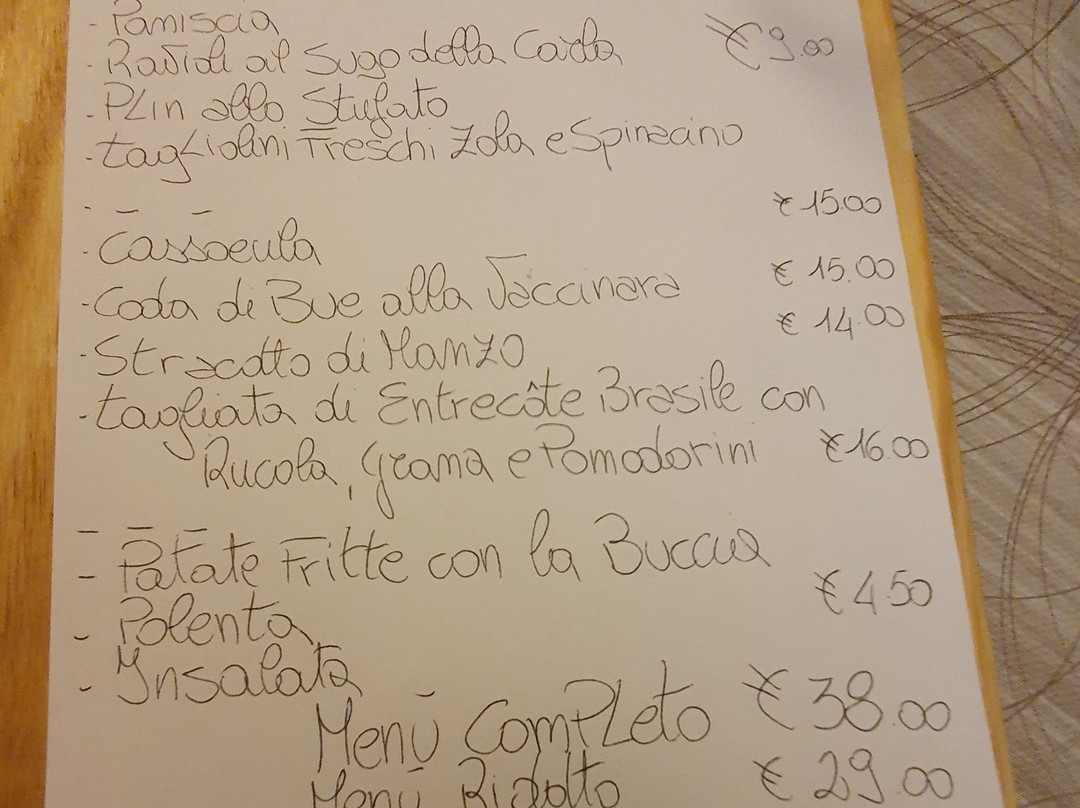 - Paniscia
- Ravioli al Sugo della Carla € 9.00
- Plin allo Stufato
- tagliolini Freschi Zola e Spinacino
- Cassoeula € 15.00
- Coda di Bue alla Vaccinara € 15.00
- Stracotto di Manzo € 14.00
- tagliata di Entrecôte Brasile con
Rucola, Grana e Pomodorini € 16.00
- Patate Fritte con la Buccia
- Polenta € 4.50
- Insalata
Menù Completo € 38.00
Menù Ridotto € 29.00